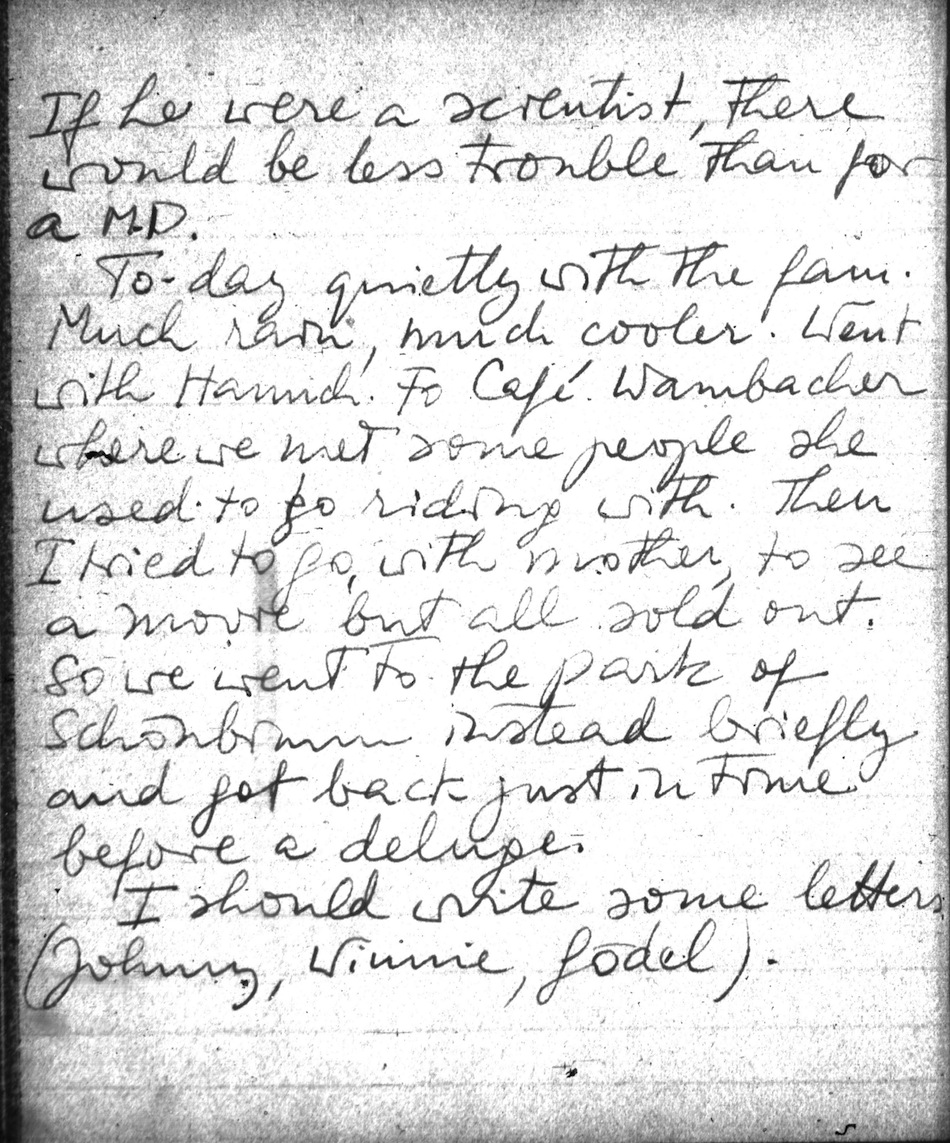 If he were a scientist, there
would be less trouble than for
a M.D.
To-day quietly with the fam.
Much rain, much cooler. Went
with Hannch. to Café Wambacher
where we met some people she
used to go riding with. Then
I tried to go, with mother, to see
a movie but all sold out.
So we went to the park of
Schönbrunn instead briefly
and got back just in time
before a deluge.
I should write some letters
(Johnny, Winnie, Gödel).